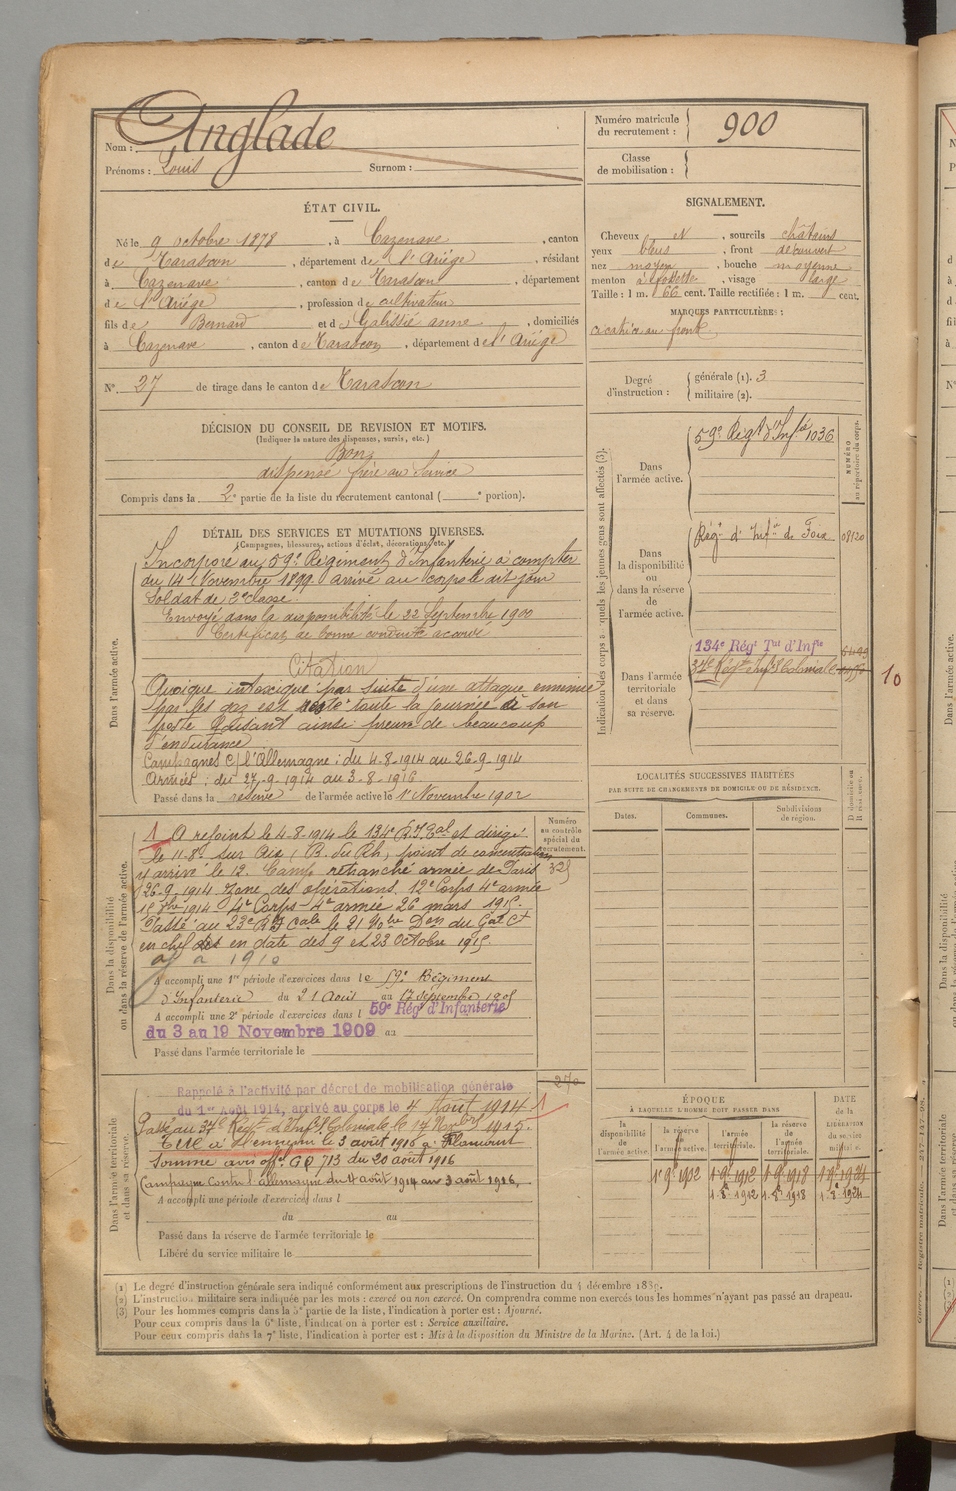 Nom : Anglade
Prénoms : Louis Surnom :
Numéro matricule du recrutement : 900
Classe de mobilisation :
ÉTAT CIVIL.
Né le 9 octobre 1878, à Cazenave, canton
de Tarascon, département de l'Ariége, résidant
à Cazenave, canton de Tarascon, département
de l'Ariége, profession de cultivateur
fils de Bernard et de Galissié anne, domiciliés
à Cazenave, canton de Tarascon, département de l'Ariége
No 27 de tirage dans le canton de Tarascon
SIGNALEMENT.
Cheveux et, sourcils châtains
yeux bleus, front découvert
nez moyen, bouche moyenne
menton à fossette, visage large
Taille : 1 m. 66 cent. Taille rectifiée : 1 m. cent.
MARQUES PARTICULIÈRES :
cicatrice au front
Degré d'instruction : générale (1). 3
militaire (2).
DÉCISION DU CONSEIL DE REVISION ET MOTIFS.
(Indiquer la nature des dispenses, sursis, etc.)
Bon
dispensé frère au service
Compris dans la 2e partie de la liste du recrutement cantonal ( e portion).
DÉTAIL DES SERVICES ET MUTATIONS DIVERSES.
(Campagnes, blessures, actions d'éclat, décorations, etc.)
Dans l'armée active.
Incorporé au 59e Régiment d'Infanterie à compter
du 14 Novembre 1899 arrivé au corps le dit jour
Soldat de 2e classe.
Envoyé dans la disponibilité le 22 Septembre 1900
Certificat de bonne conduite accordé
Citation
Quoique intoxiqué par suite d'une attaque ennemie
par les gaz est resté toute la journée à son
poste faisant ainsi preuve de beaucoup
d'endurance
Campagnes c/ l'Allemagne : du 4-8-1914 au 26-9-1914
Armées : du 27-9-1914 au 3-8-1916
Passé dans la réserve de l'armée active le 1er Novembre 1902
Indication des corps auxquels les jeunes gens sont affectés (3).
NUMÉRO au répertoire du corps.
Dans l'armée active.
59e Régt d'Infie 1036
Dans la disponibilité ou dans la réserve de l'armée active.
Régt d'Infie de Foix 08120
Dans l'armée territoriale et dans sa réserve.
134e Régt Tal d'Infie
37e Régt Infie Coloniale
10
LOCALITÉS SUCCESSIVES HABITÉES
PAR SUITE DE CHANGEMENTS DE DOMICILE OU DE RÉSIDENCE.
Dates. Communes. Subdivisions de région.
Dans la disponibilité ou dans la réserve de l'armée active.
Numéro au contrôle spécial du recrutement.
325
1 A rejoint le 4-8-1914 le 134e R.I.Tal et dirigé
le 11-8e sur Aix (B. du Rh) point de concentration
y arrive le 12. Camp retranché armée de Paris
26-9-1914 Zone des opérations. 12e Corps 4e armée
15 9bre 1914 - 4e Corps - 4e armée 26 mars 1915.
Passé au 23e R.I Cale le 21 Nobre Don du Gal Ct
en chef en date des 9 et 23 Octobre 1915.
A accompli une 1re période d'exercices dans le 59e Régiment
d'Infanterie du 21 Août au 17 Septembre 1905
A accompli une 2e période d'exercices dans l 59e Régt d'Infanterie
du 3 au 19 Novembre 1909 au
Passé dans l'armée territoriale le
Dans l'armée territoriale et dans sa réserve.
270
Rappelé à l'activité par décret de mobilisation générale
du 1er Août 1914, arrivé au corps le 4 Août 1914 1
Passé au 37e Régt d'Infie Coloniale le 17 Novbre 1915.
Tué à l'ennemi le 3 août 1916 à Flamourt
Somme avis offel GQ 713 du 20 août 1916
Campagne contre l'allemagne du 4 août 1914 au 3 août 1916,
A accompli une période d'exercices dans l
du au
Passé dans la réserve de l'armée territoriale le
Libéré du service militaire le
ÉPOQUE
À LAQUELLE L'HOMME DOIT PASSER DANS
DATE de la LIBÉRATION du service militaire.
la disponibilité de l'armée active. la réserve de l'armée active. l'armée territoriale. la réserve de l'armée territoriale.
1e 9e 1902 1e 9e 1912 1e 9e 1918 1e 9e 1924
1-8e 1912 1-8e 1918 1-8e 1924
(1) Le degré d'instruction générale sera indiqué conformément aux prescriptions de l'instruction du 4 décembre 1889.
(2) L'instruction militaire sera indiquée par les mots : exercé ou non exercé. On comprendra comme non exercés tous les hommes n'ayant pas passé au drapeau.
(3) Pour les hommes compris dans la 5e partie de la liste, l'indication à porter est : Ajourné.
Pour ceux compris dans la 6e liste, l'indication à porter est : Service auxiliaire.
Pour ceux compris dans la 7e liste, l'indication à porter est : Mis à la disposition du Ministre de la Marine. (Art. 4 de la loi.)